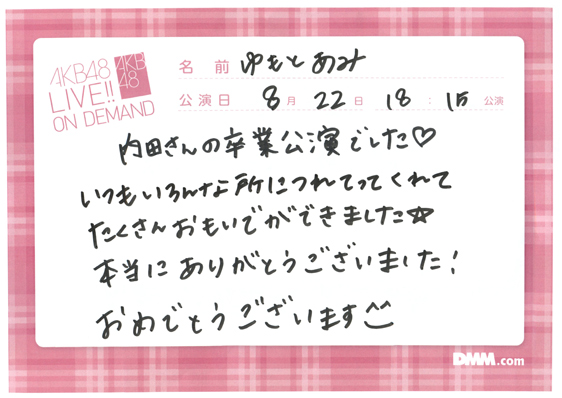 AKB48
LIVE!!
ON DEMAND
AKB
48
名前 ゆもとあみ
公演日 8月22日 18:15公演
内田さんの卒業公演でした♡
いつもいろんな所につれてってくれて
たくさんおもいでができました☆
本当にありがとうございました!
おめでとうございます^^
DMM.com